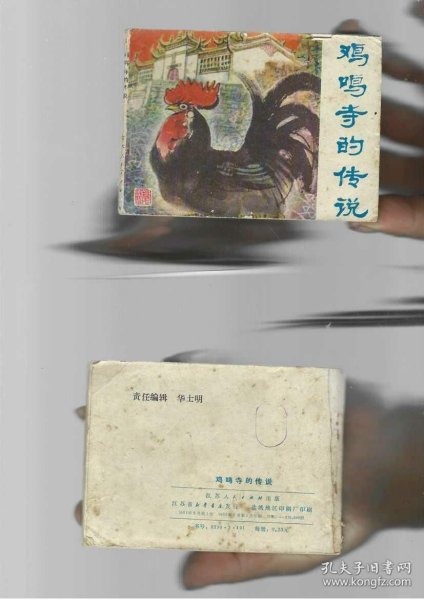 鸡鸣寺的传说
责任编辑 华士明
鸡鸣寺的传说
江苏人民出版社出版
江苏省新华书店发行 盐城地区印刷厂印刷
孔夫子旧书网
www.kongfz.com